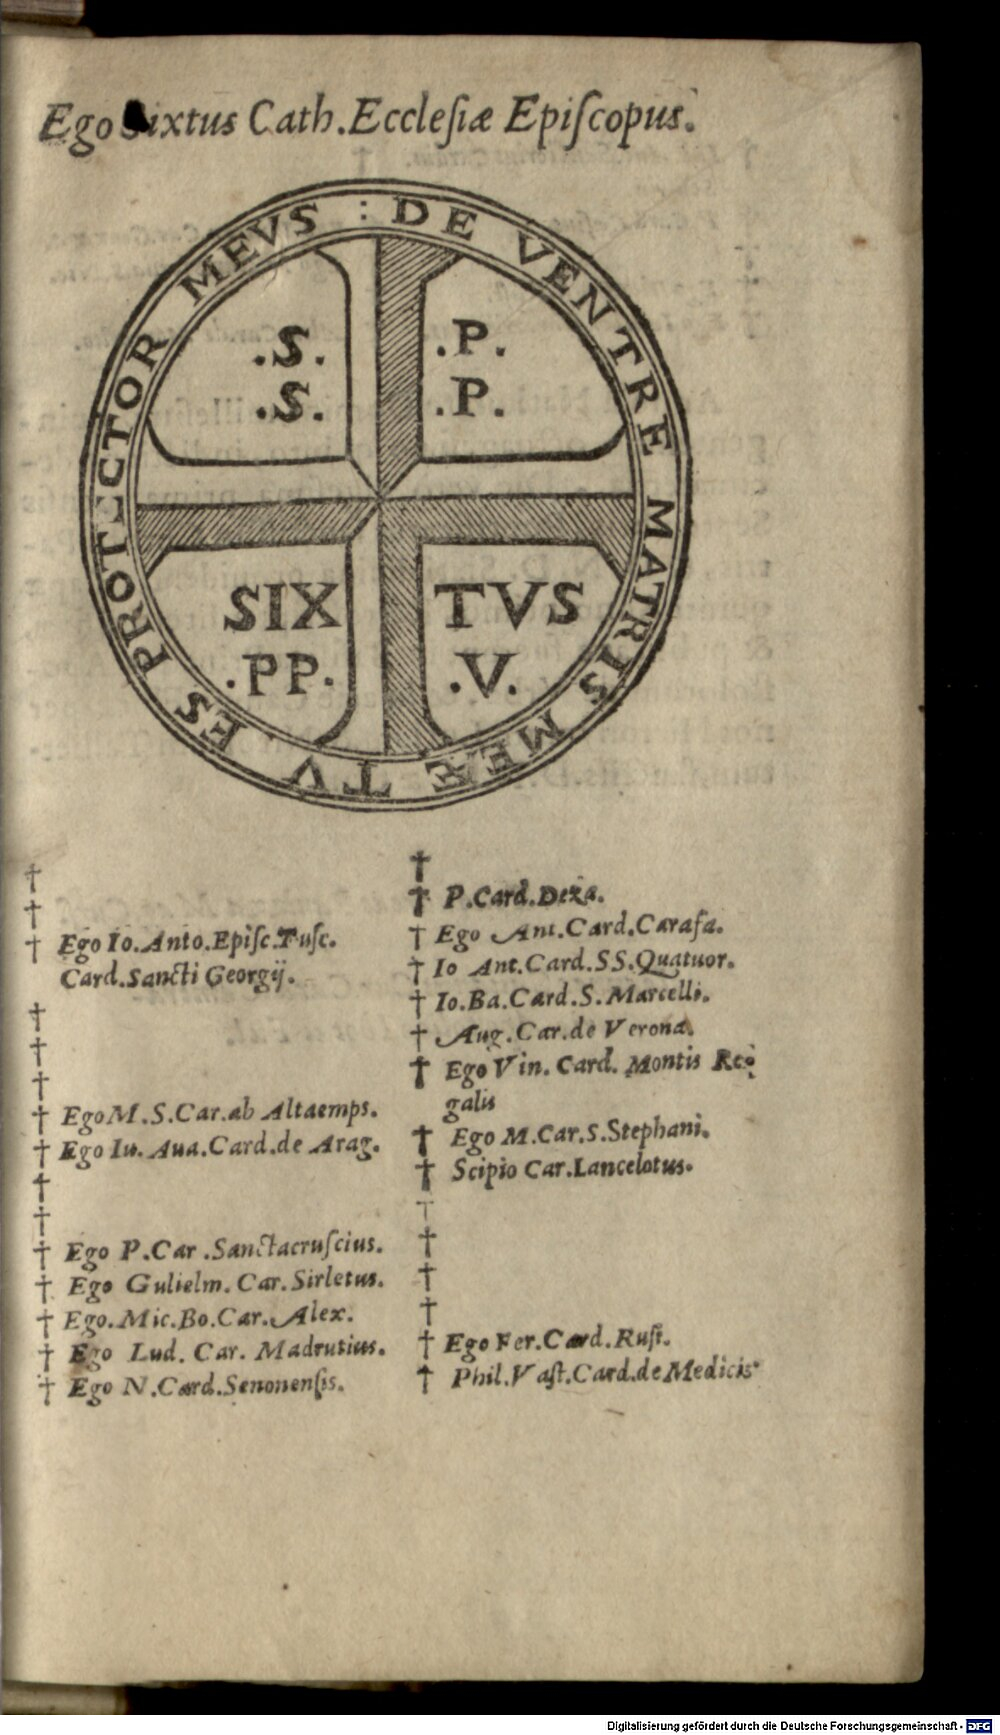 Ego Sixtus Cath. Ecclesiæ Episcopus.
: DE VENTRE MATRIS MEÆ TV ES PROTECTOR MEVS
.S. .P.
.S. .P.
SIX TVS
.PP. .V.
†
†
† Ego Io. Anto. Episc. Tusc.
Card. Sancti Georgij.
†
†
†
† Ego M. S. Car. ab Altaemps.
† Ego Iu. Aua. Card. de Arag.
†
†
† Ego P. Car. Sanctacruscius.
† Ego Gulielm. Car. Sirletus.
† Ego. Mic. Bo. Car. Alex.
† Ego Lud. Car. Madrutius.
† Ego N. Card. Senonensis.
†
† P. Card. Deza.
† Ego Ant. Card. Carafa.
† Io Ant. Card. SS. Quatuor.
† Io. Ba. Card. S. Marcelli.
† Aug. Car. de Verona.
† Ego Vin. Card. Montis Re
galis
† Ego M. Car. S. Stephani.
† Scipio Car. Lancelotus.
†
†
†
†
† Ego Fer. Card. Rusti.
† Phil. Vast. Card. de Medicis
Digitalisierung gefördert durch die Deutsche Forschungsgemeinschaft - DFG